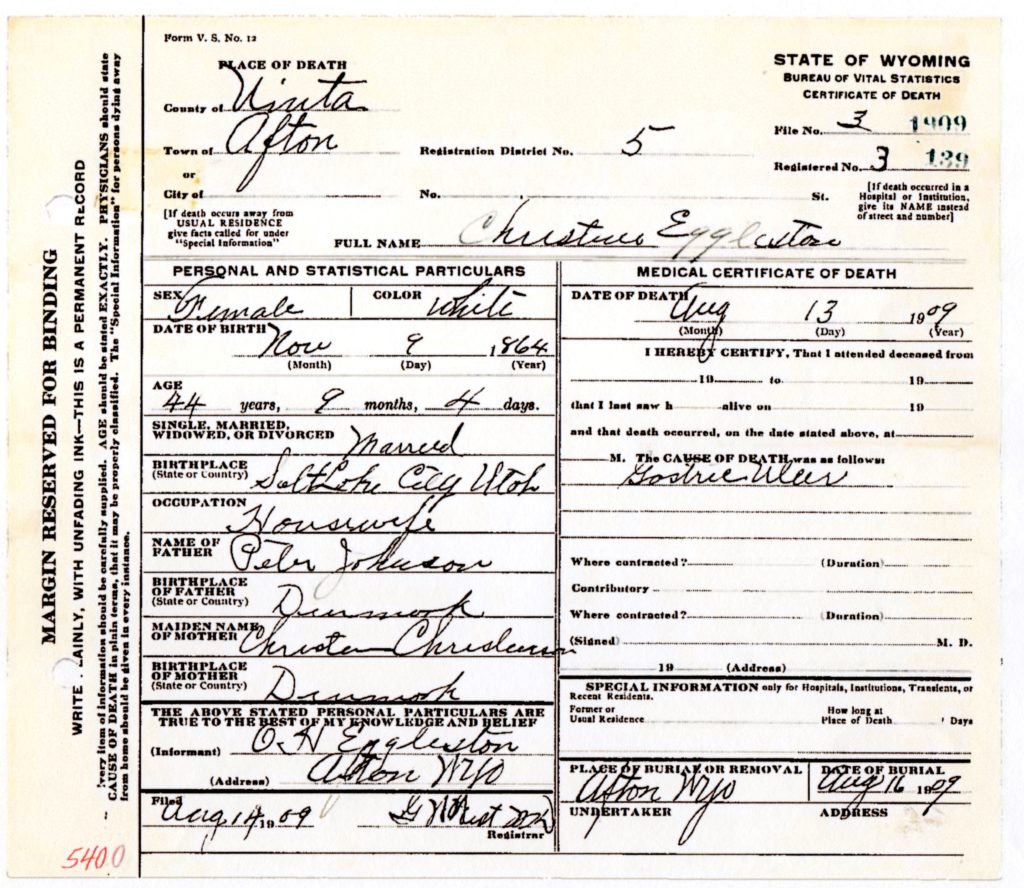 Form V. S. No. 12
PLACE OF DEATH
County of Uinta
Town of Afton
or
City of
[If death occurs away from
USUAL RESIDENCE
give facts called for under
"Special Information"]
Registration District No. 5
No. St.
STATE OF WYOMING
BUREAU OF VITAL STATISTICS
CERTIFICATE OF DEATH
File No. 3 1909
Registered No. 3 139
[If death occurred in a
Hospital or Institution,
give its NAME instead
of street and number]
FULL NAME Eggleston
PERSONAL AND STATISTICAL PARTICULARS
SEX Female COLOR White
DATE OF BIRTH
Nov 9 1864
(Month) (Day) (Year)
AGE
44 years, 9 months, 4 days.
SINGLE, MARRIED,
WIDOWED, OR DIVORCED Married
BIRTHPLACE
(State or Country) Salt Lake City Utah
OCCUPATION
Housewife
NAME OF
FATHER Peter Johnson
BIRTHPLACE
OF FATHER
(State or Country) Denmark
MAIDEN NAME
OF MOTHER Christenson
BIRTHPLACE
OF MOTHER
(State or Country) Denmark
THE ABOVE STATED PERSONAL PARTICULARS ARE
TRUE TO THE BEST OF MY KNOWLEDGE AND BELIEF
(Informant) O. H Eggleston
(Address) Afton Wyo
Filed
Aug 14 1909
Registrar
MEDICAL CERTIFICATE OF DEATH
DATE OF DEATH Aug 13 1909
(Month) (Day) (Year)
I HEREBY CERTIFY, That I attended deceased from
19 to 19
that I last saw h alive on 19
and that death occurred, on the date stated above, at
M. The CAUSE OF DEATH was as follows:
Gastric Ulcer
Where contracted? (Duration)
Contributory
Where contracted? (Duration)
(Signed) M. D.
19 (Address)
SPECIAL INFORMATION only for Hospitals, Institutions, Transients, or
Recent Residents.
Former or
Usual Residence
How long at
Place of Death Days
PLACE OF BURIAL OR REMOVAL
Afton Wyo
DATE OF BURIAL
Aug 16 1909
UNDERTAKER ADDRESS
MARGIN RESERVED FOR BINDING
WRITE PLAINLY, WITH UNFADING INK—THIS IS A PERMANENT RECORD
every item of information should be carefully supplied. AGE should be stated EXACTLY. PHYSICIANS should state
CAUSE OF DEATH in plain terms, that it may be properly classified. The "Special Information" for persons dying away
from home should be given in every instance.
5400